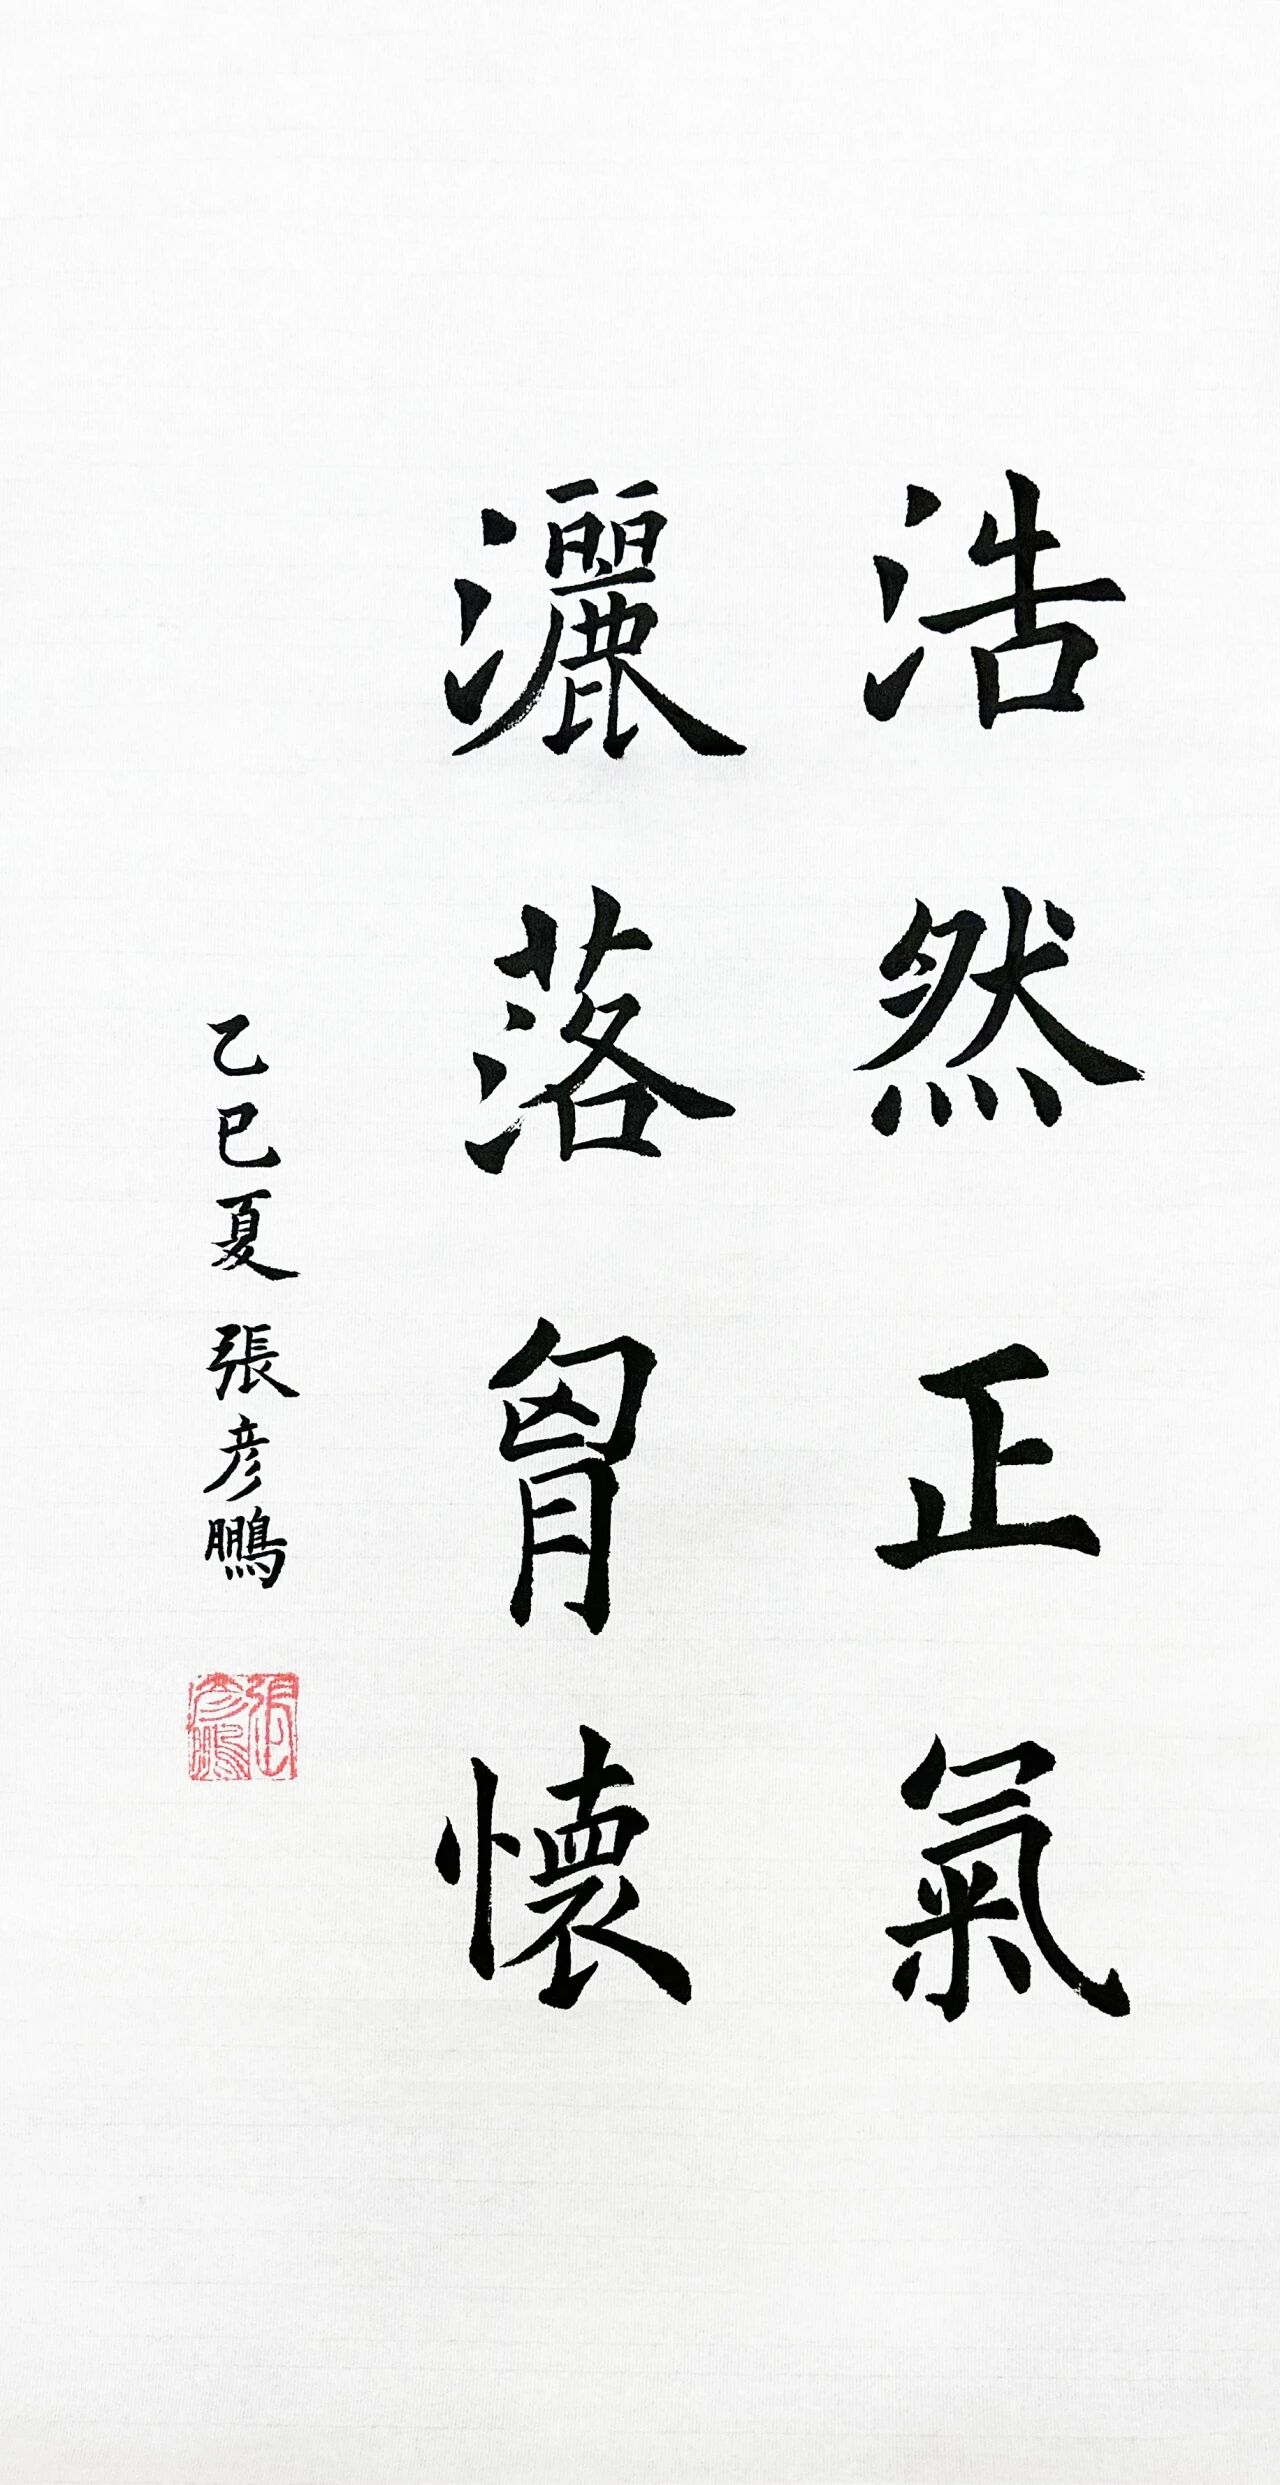 浩然正氣
灑落胷懷
乙巳夏 張彥鵬
張彥鵬